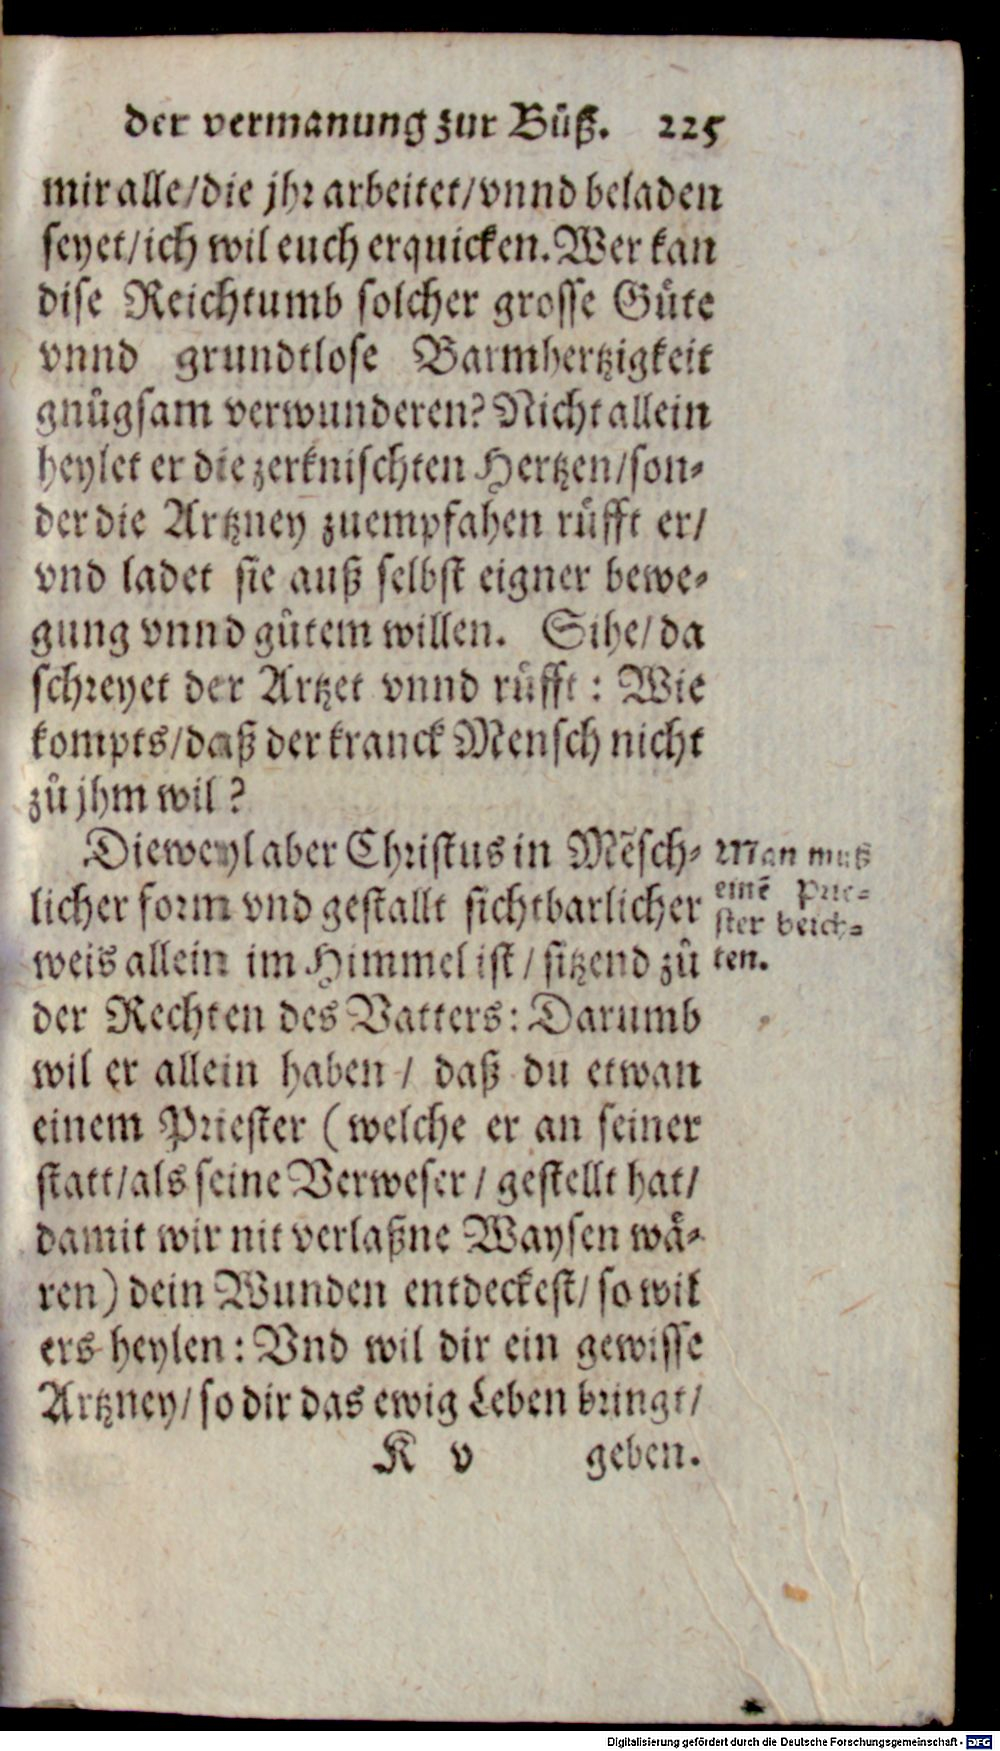 der vermanung zur Bůß. 225
mir alle/die jhr arbeitet/vnnd beladen
seyet/ich wil euch erquicken. Wer kan
dise Reichtumb solcher grosse Gůte
vnnd grundtlose Barmhertzigkeit
gnůgsam verwunderen? Nicht allein
heylet er die zerknischten Hertzen/son-
der die Artzney zuempfahen růfft er/
vnd ladet sie auß selbst eigner bewe-
gung vnnd gůtem willen. Sihe/da
schreyet der Artzet vnnd růfft: Wie
kompts/daß der kranck Mensch nicht
zů jhm wil?
Dieweyl aber Christus in Mẽsch-
licher form vnd gestallt sichtbarlicher
weis allein im Himmel ist/sitzend zů
der Rechten des Vatters: Darumb
wil er allein haben/ daß du etwan
einem Priester (welche er an seiner
statt/als seine Verweser/gestellt hat/
damit wir nit verlaßne Waysen wå-
ren) dein Wunden entdeckest/so wil
ers heylen: Vnd wil dir ein gewisse
Artzney/so dir das ewig Leben bringt/
K v geben.
Man muß
einẽ Prie-
ster beich-
ten.
Digitalisierung gefördert durch die Deutsche Forschungsgemeinschaft - DFG